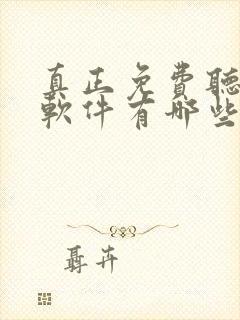 真正免費聽
軟件有哪些
聶卉